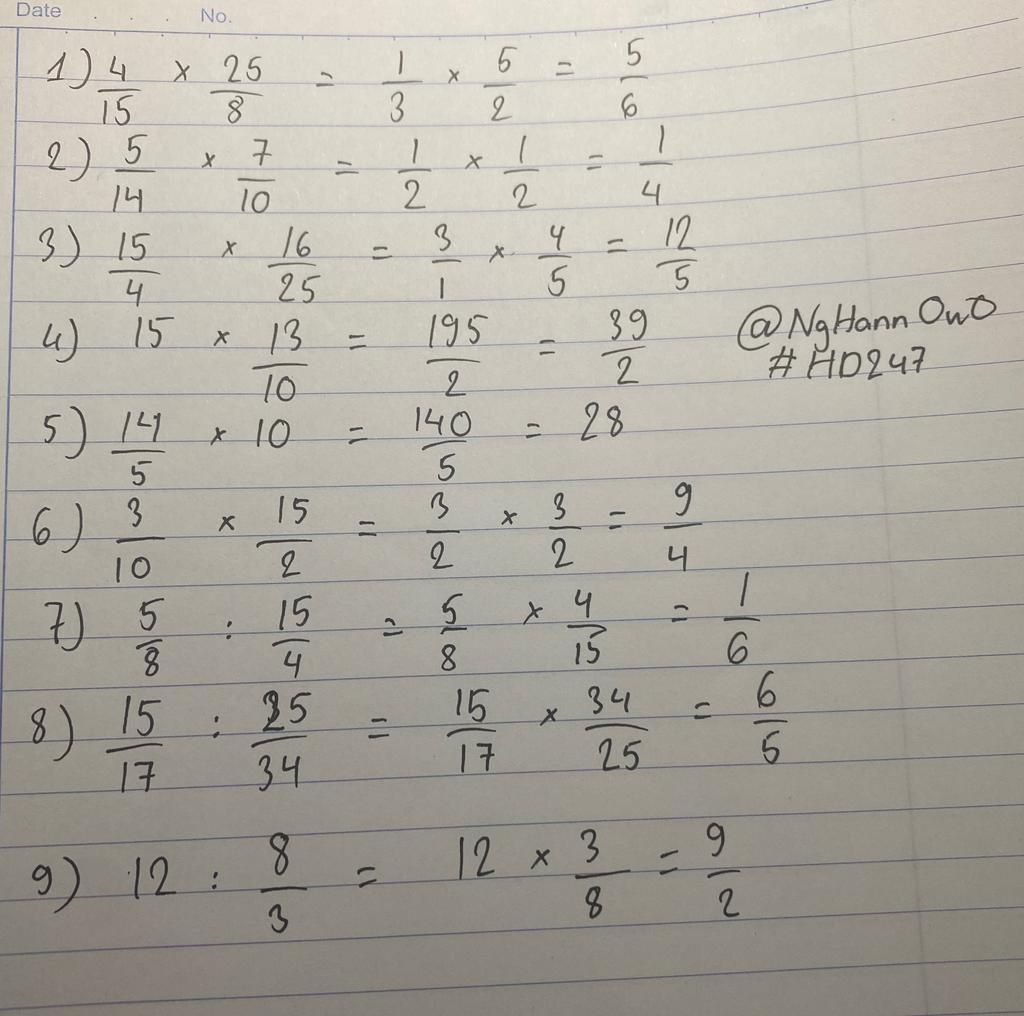 Date . . . . No.
1) 4/15 × 25/8 = 1/3 × 5/2 = 5/6
2) 5/14 × 7/10 = 1/2 × 1/2 = 1/4
3) 15/4 × 16/25 = 3/1 × 4/5 = 12/5
4) 15 × 13/10 = 195/2 = 39/2
@NgHannOwO
#HD247
5) 14/5 × 10 = 140/5 = 28
6) 3/10 × 15/2 = 3/2 × 3/2 = 9/4
7) 5/8 : 15/4 = 5/8 × 4/15 = 1/6
8) 15/17 : 25/34 = 15/17 × 34/25 = 6/5
9) 12 : 8/3 = 12 × 3/8 = 9/2